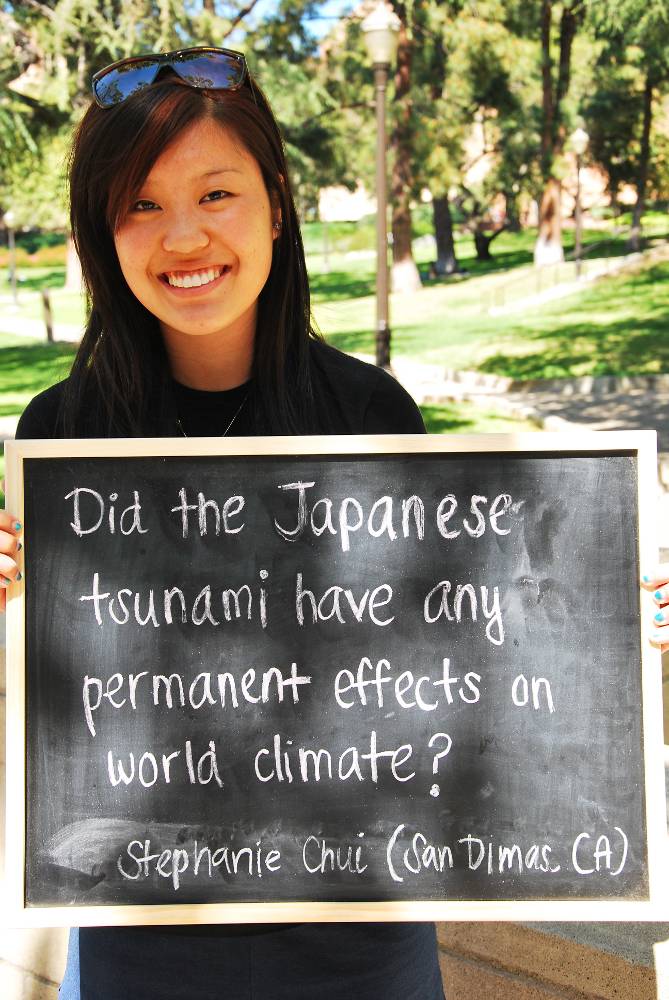 Did the Japanese
tsunami have any
permanent effects on
world climate?
Stephanie Chui (San Dimas, CA)